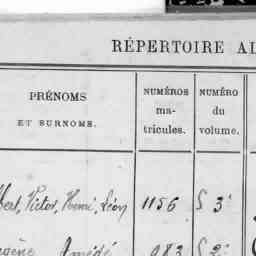 RÉPERTOIRE AL
PRÉNOMS
ET SURNOMS.
NUMÉROS
ma-
tricules.
NUMÉRO
du
volume.
bert, Victor, Henri, Léon 1156 § 3ᵉ
gène Amédé 983 § 2ᵉ